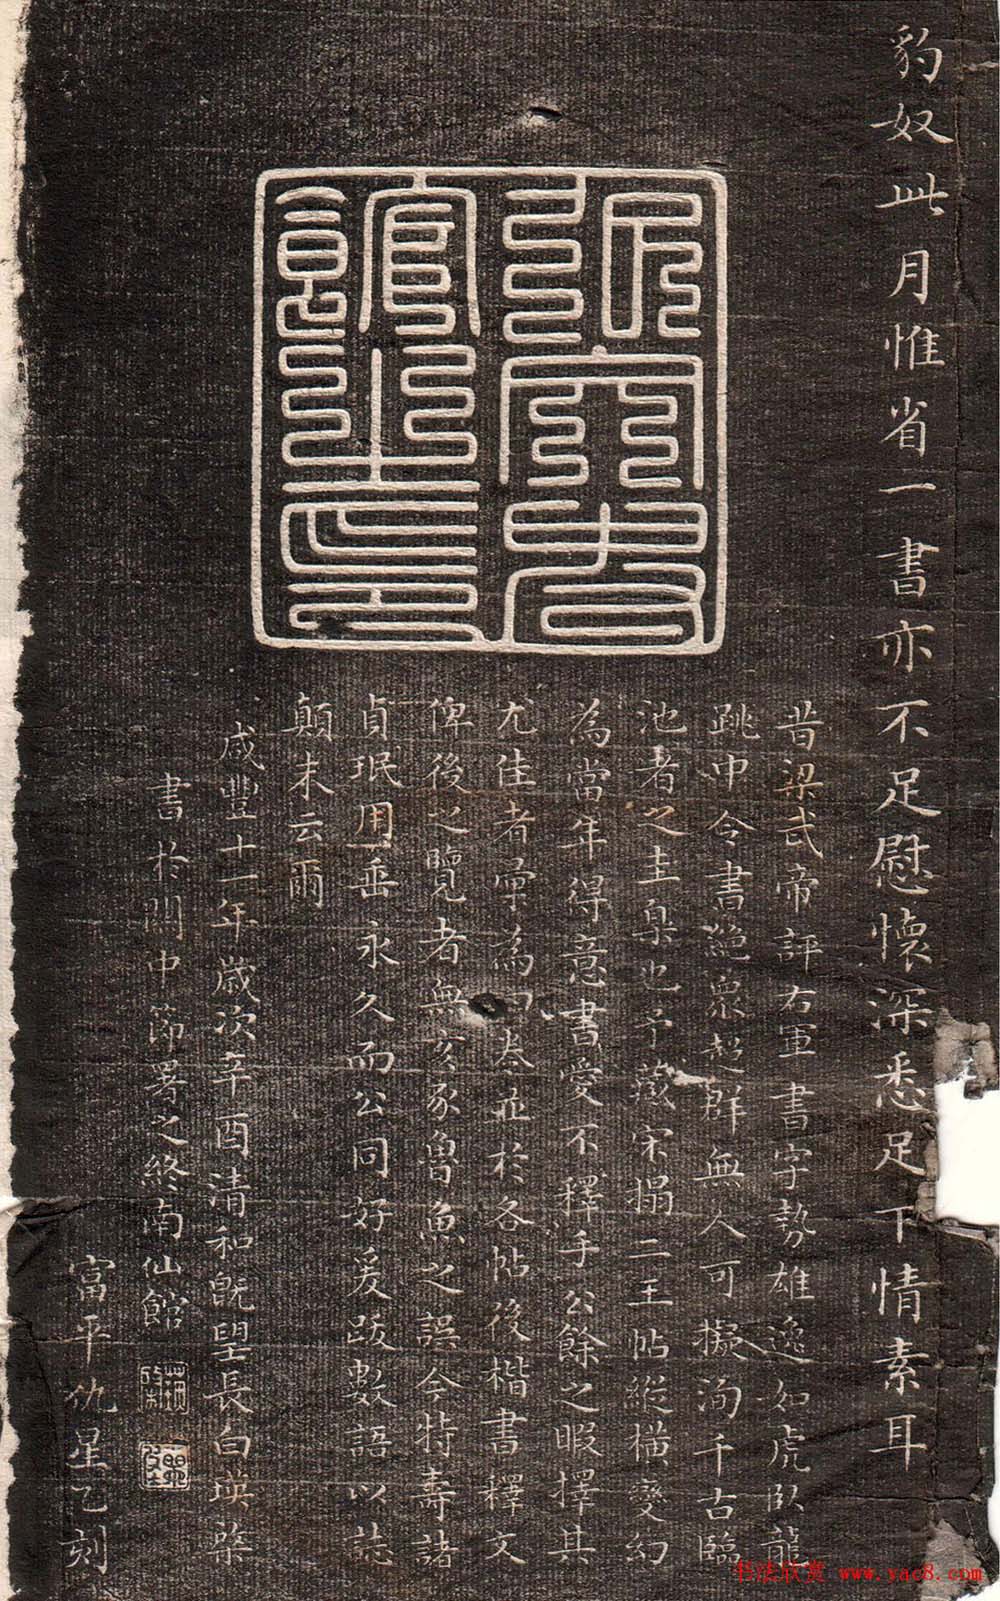 豹奴此月惟省一書亦不足慰懷深悉足下情素耳
昔梁武帝評右軍書字勢雄逸如虎臥龍
跳中令書絕衆超群無人可擬洵千古臨
池者之圭臬也予藏宋搨二王帖縱橫變幻
為當年得意書愛不釋手公餘之暇擇其
尤佳者彙為四卷並於各帖後楷書釋文
俾後之覽者無亥豕魯魚之誤今特壽諸
貞珉用垂永久而公同好爰跋數語以誌
顛末云爾
咸豐十一年歲次辛酉清和既望長白瑛棨
書於關中節署之終南仙館
富平仇星乙刻
书法欣赏 www.yac8.com